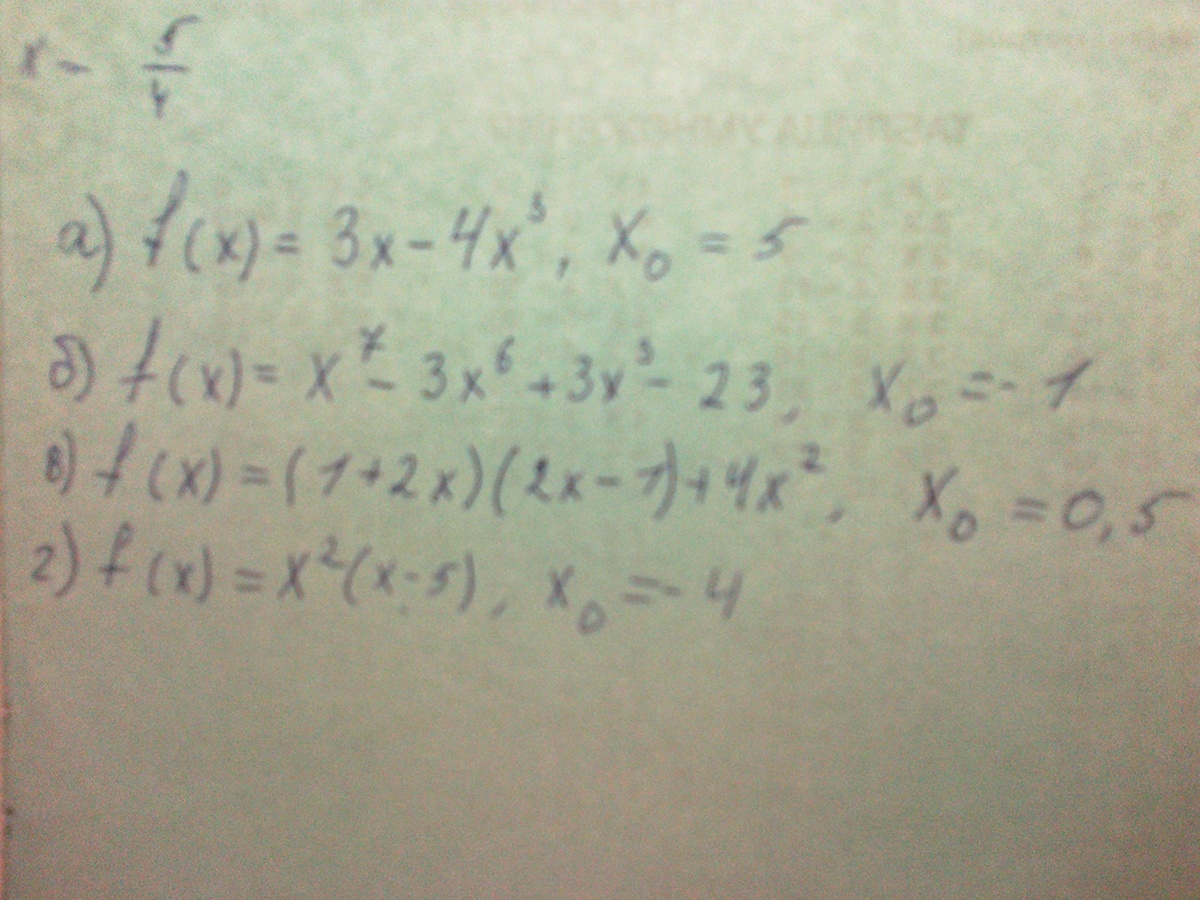 x - 5/4
а) f(x) = 3x - 4x³, x₀ = 5
б) f(x) = x⁷ - 3x⁶ + 3x³ - 23, x₀ = - 1
в) f(x) = (1+2x)(2x-1)+4x², x₀ = 0,5
г) f(x) = x²(x-5), x₀ = - 4